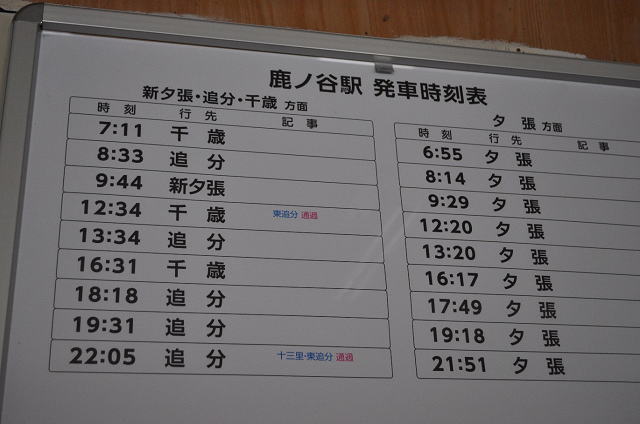 鹿ノ谷駅 発車時刻表
新夕張・追分・千歳 方面
時刻 行先 記事
7:11 千歳
8:33 追分
9:44 新夕張
12:34 千歳 東追分 通過
13:34 追分
16:31 千歳
18:18 追分
19:31 追分
22:05 追分 十三里・東追分 通過
夕張 方面
時刻 行先 記事
6:55 夕張
8:14 夕張
9:29 夕張
12:20 夕張
13:20 夕張
16:17 夕張
17:49 夕張
19:18 夕張
21:51 夕張